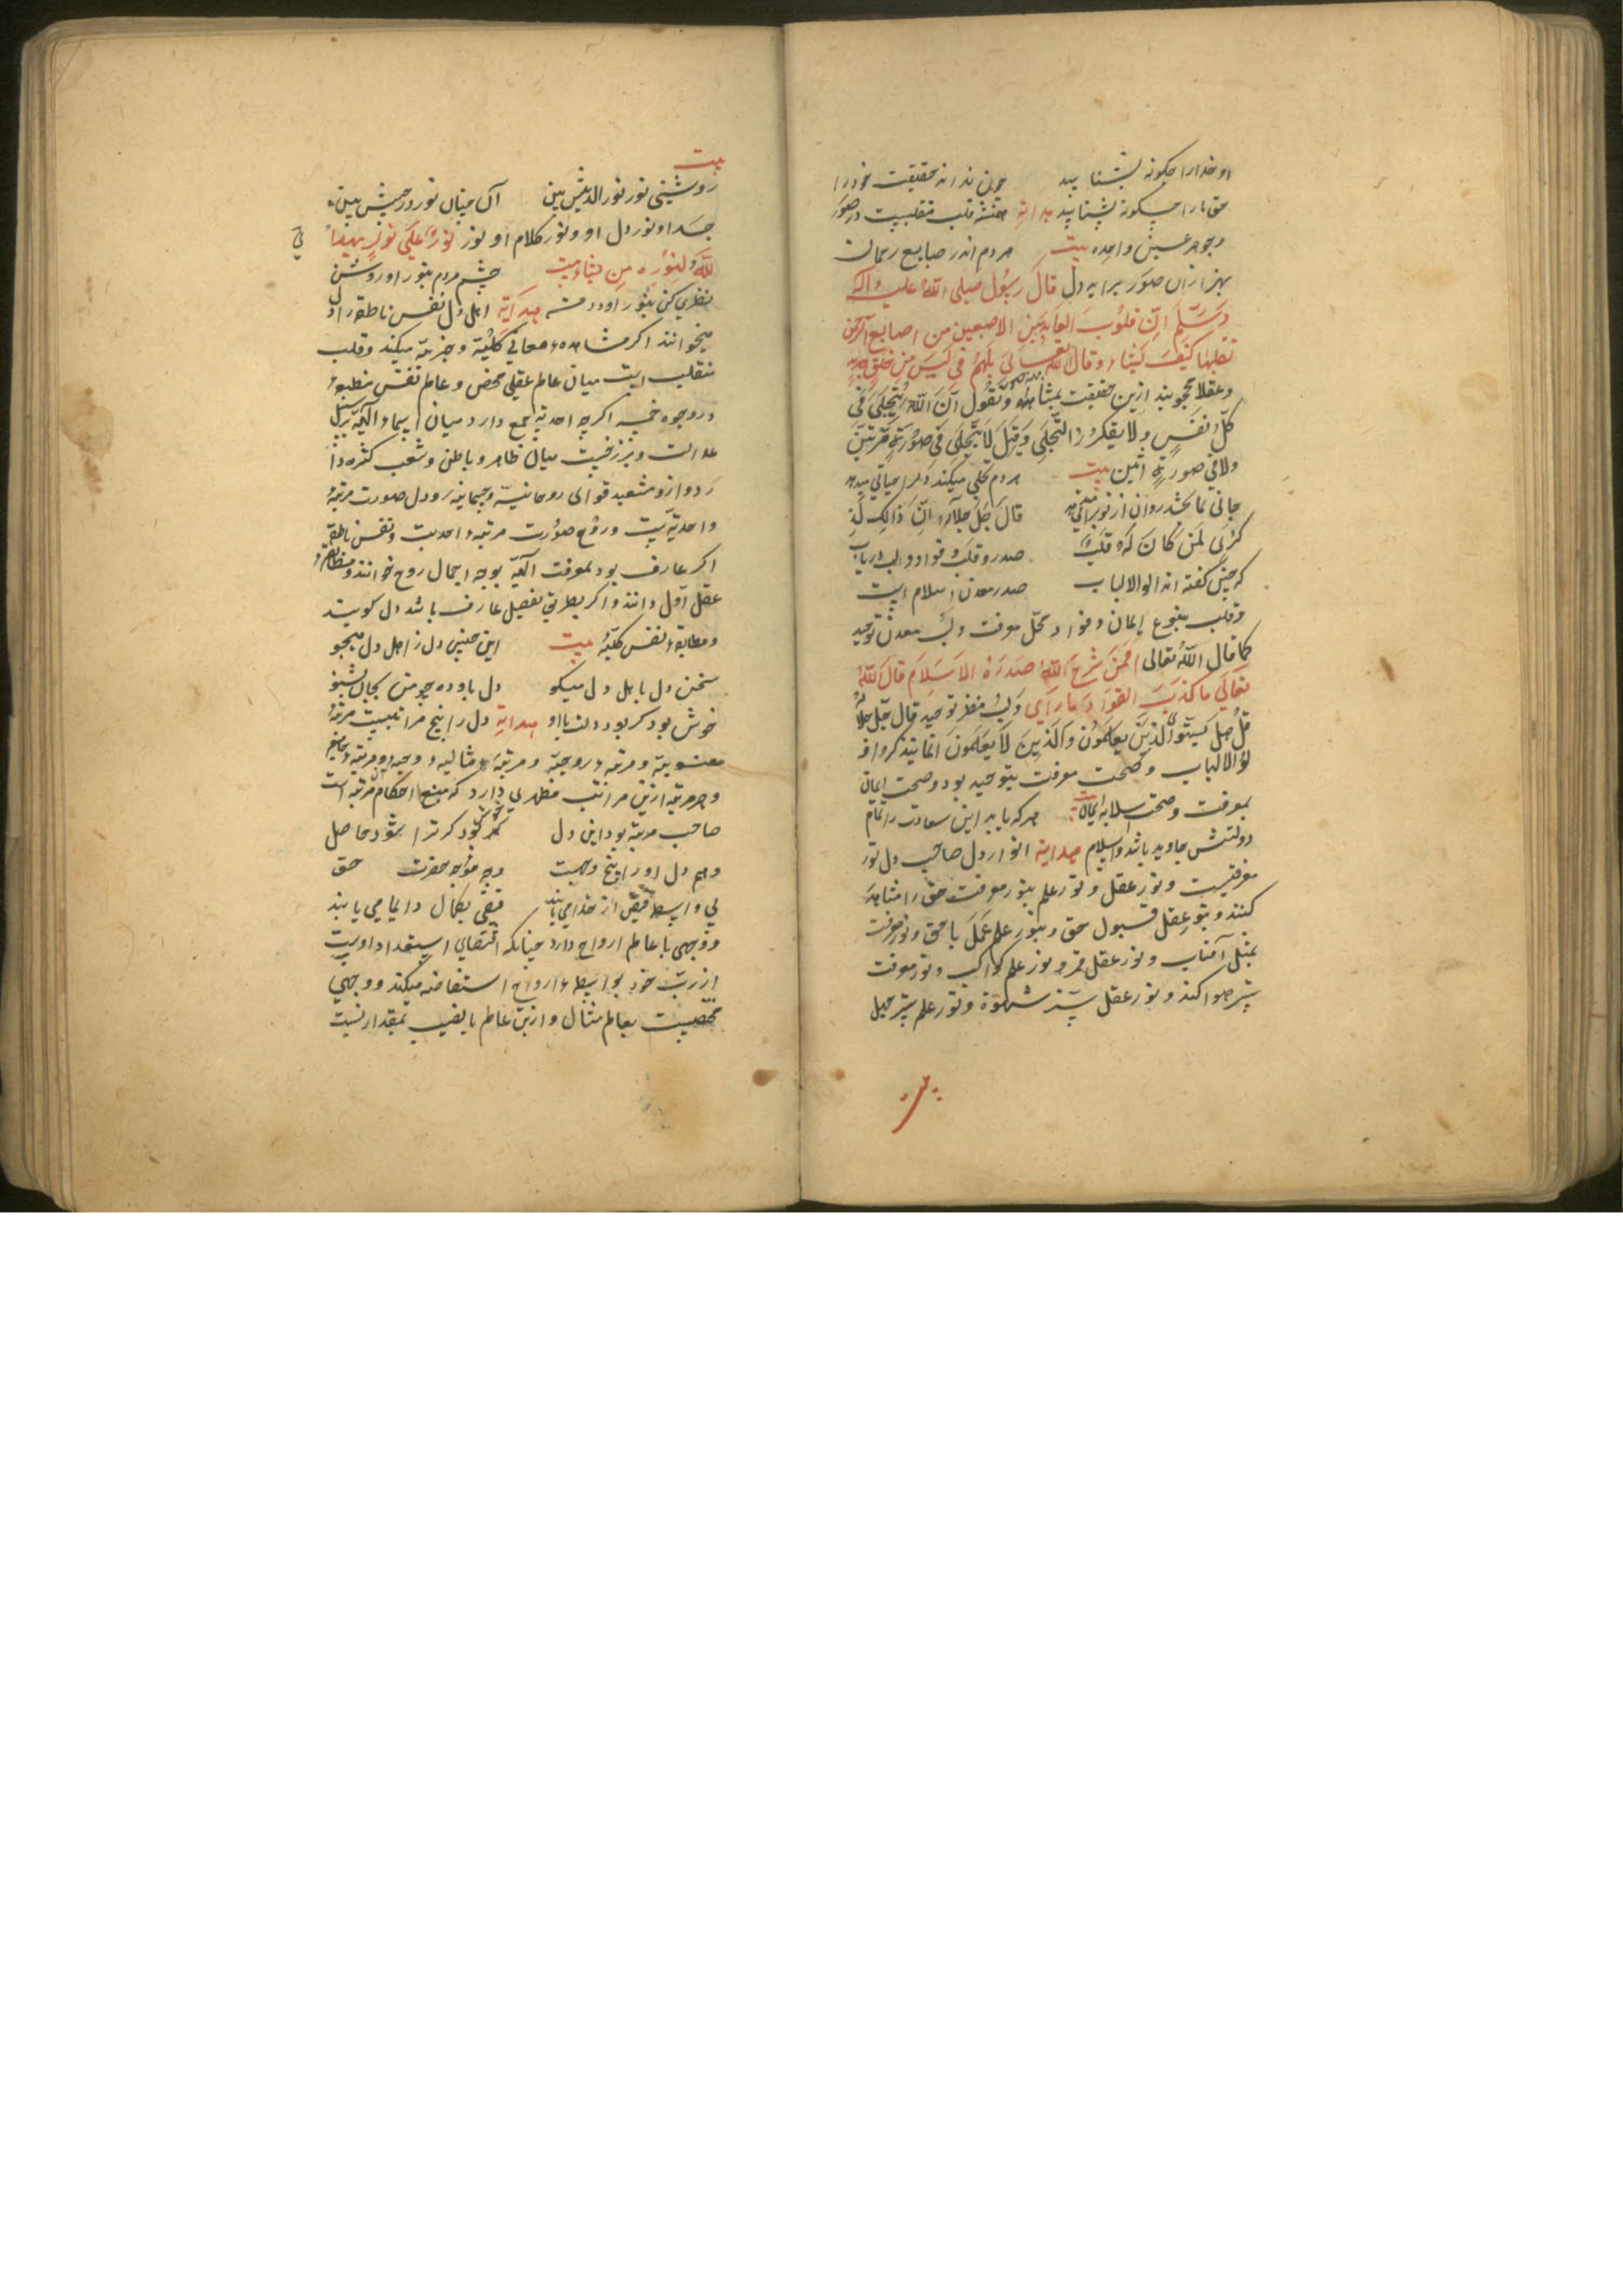 او خدا را چگونه بشناسد چون نداند حقیقت خود را
حق ما را چگونه بشناسد هدایة قلب متقلبست در صور
وجوهر عین واحده بیت هر دم اندر صبایع رحمان
بهزاران صور براید دل قال رسول صلی الله علیه واله
وسلم ان قلوب العابد بین الاصبعین من اصابع الرحمن
تقلبها کیف یشاء وقال الله تعالی بل هم فی لبس من خلق جدید
وعقلا محجوبند ازین حقیقت ونقول ان الله یتجلی فی
کل نفس ولا یتکرر التجلی وقیل لا یتجلی فی صورة مرتین
ولا فی صورة اثنین بیت هر دم تجلی میکند
جانی قال جل جلاله ان ذالک لذ
کری لمن کان له قلب صدر و قلب و فواد و لب دریاب
که چنین گفته اند الوالالباب صدر معدن اسلام است
وقلب منبوع ایمان و فواد محل معرفت و لب معدن توحید
کما قال الله تعالی افمن شرح الله صدره الاسلام قال الله
تعالی ما کذب الفواد ما رای و لب مغز توحید قال جل جلاله
قل هل یستوی الذین یعلمون والذین لا یعلمون انما یتذکر او
لوالالباب و صحت معرفت بتوحید بود و صحت ایمان
بمعرفت و صحت اسلام به ایمان بیت هر که یابد این سعادت را تمام
دولتش جاوید باشد والسلام هدایة انوار دل صاحب دل نور
معرفتست و نور عقل و نور علم بنور معرفت حق را مشاهده
کنند و بنور عقل قبول حق و بنور علم عمل با حق و نور معرفت
بمثل آفتاب و نور عقل قمر و نور علم کواکب و نور معرفت
ستر هوا کند و نور عقل ستر شهوة و نور علم ستر جهل
بیت
روشنی نور نور الدینش بین آن چنان نور در چشمش بین
جسد او نور دل او و نور کلام او نور نور علی نور یهدی
الله لنوره من یشاء بیت چشم مردم بنور او روشن
نظری کن بنور او هدایة اهل دل نفس ناطقه را دل
میخوانند اگر مشاهده معانی کلیه و جزیه میکند و قلب
متقلب است میان عالم عقلی محض و عالم نفس منطبعه
در وجوه خمسه اگر چه احدیة جمع دارد میان اسماء الهیه بر سبیل
عدالت و برزخیست میان ظاهر و باطن و شعب کثره
و ازو متشعبد قوای روحانیه و جسمانیه و دل صورت مرتبه
واحدیتست و روح صورت مرتبه احدیت و نفس ناطقه
اگر عارف بود بمعرفت الهیه بوجه اجمال روح خوانند
عقل اول دانند و اگر بطریق تفصیل عارف باشد دل گویند
ومطابقه نفس کلیه بیت این چنین دل ز اهل دل میجو
سخن دل باهل دل میگو دل باو ده چو من بجان بشنو
خوش بود گر بود دلت با او هدایة دل را پنج مراتبست مرتبه
معنویه و مرتبه روحیه و مرتبه مثالیه و مرتبه جامعه
و هر مرتبه ازین مراتب مظهری دارد که منبع احکام آن مرتبه است
صاحب مرتبه بود این دل خوش بود گر ترا شود حاصل
وهم دل او را پنج وجهست وجه مواجه حضرت حق
بی واسطه فیض از خدا می یابند فیض بکمال دایما می یابند
ووجهی با عالم ارواح دارد چنانکه اقتضای استعداد اوست
از رب خود بواسطه ارواح استفاضه میکند و وجهی
مخصصست بعالم مثال و ازین عالم با نصیب بمقدار نسبت